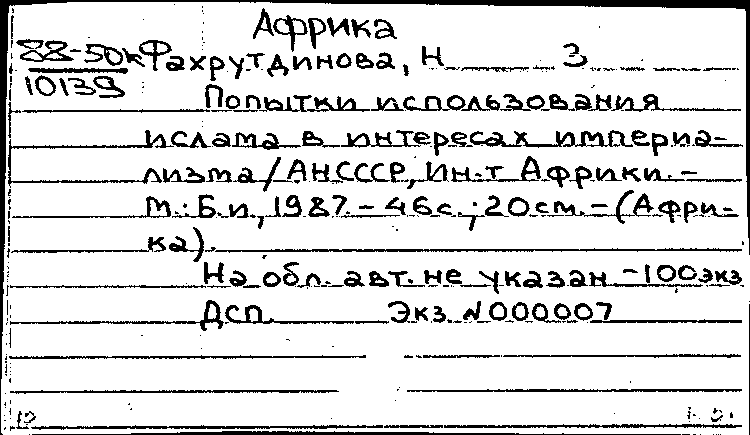 Африка
88-50к Фахрутдинова, Н З
10139
Попытки использования
ислама в интересах империа-
лизма / АНСССР, Ин-т Африки. -
М.: Б.и., 1987. - 46с.; 20см. - (Афри-
ка).
На обл. авт. не указан - 100экз
ДСП. Экз. N000007